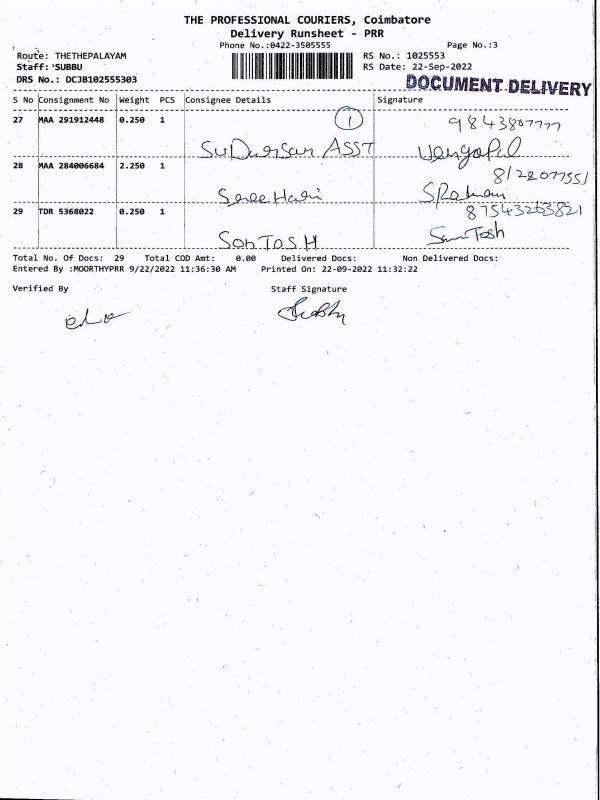 THE PROFESSIONAL COURIERS, Coimbatore
Delivery Runsheet - PRR
Phone No.:0422-3505555 Page No.:3
Route: THETHEPALAYAM RS No.: 1025553
Staff: 'SUBBU RS Date: 22-Sep-2022
DRS No.: DCJB102555303
DOCUMENT DELIVERY
S No Consignment No Weight PCS Consignee Details Signature
27 MAA 291912448 0.250 1 1 9843807777
SuDarsan ASST Vengopal
28 MAA 284006684 2.250 1
Sree Hari
29 TDR 5368022 0.250 1
SonTOSH SanTosh
Total No. Of Docs: 29 Total COD Amt: 0.00 Delivered Docs: Non Delivered Docs:
Entered By :MOORTHYPRR 9/22/2022 11:36:30 AM Printed On: 22-09-2022 11:32:22
Verified By Staff Signature